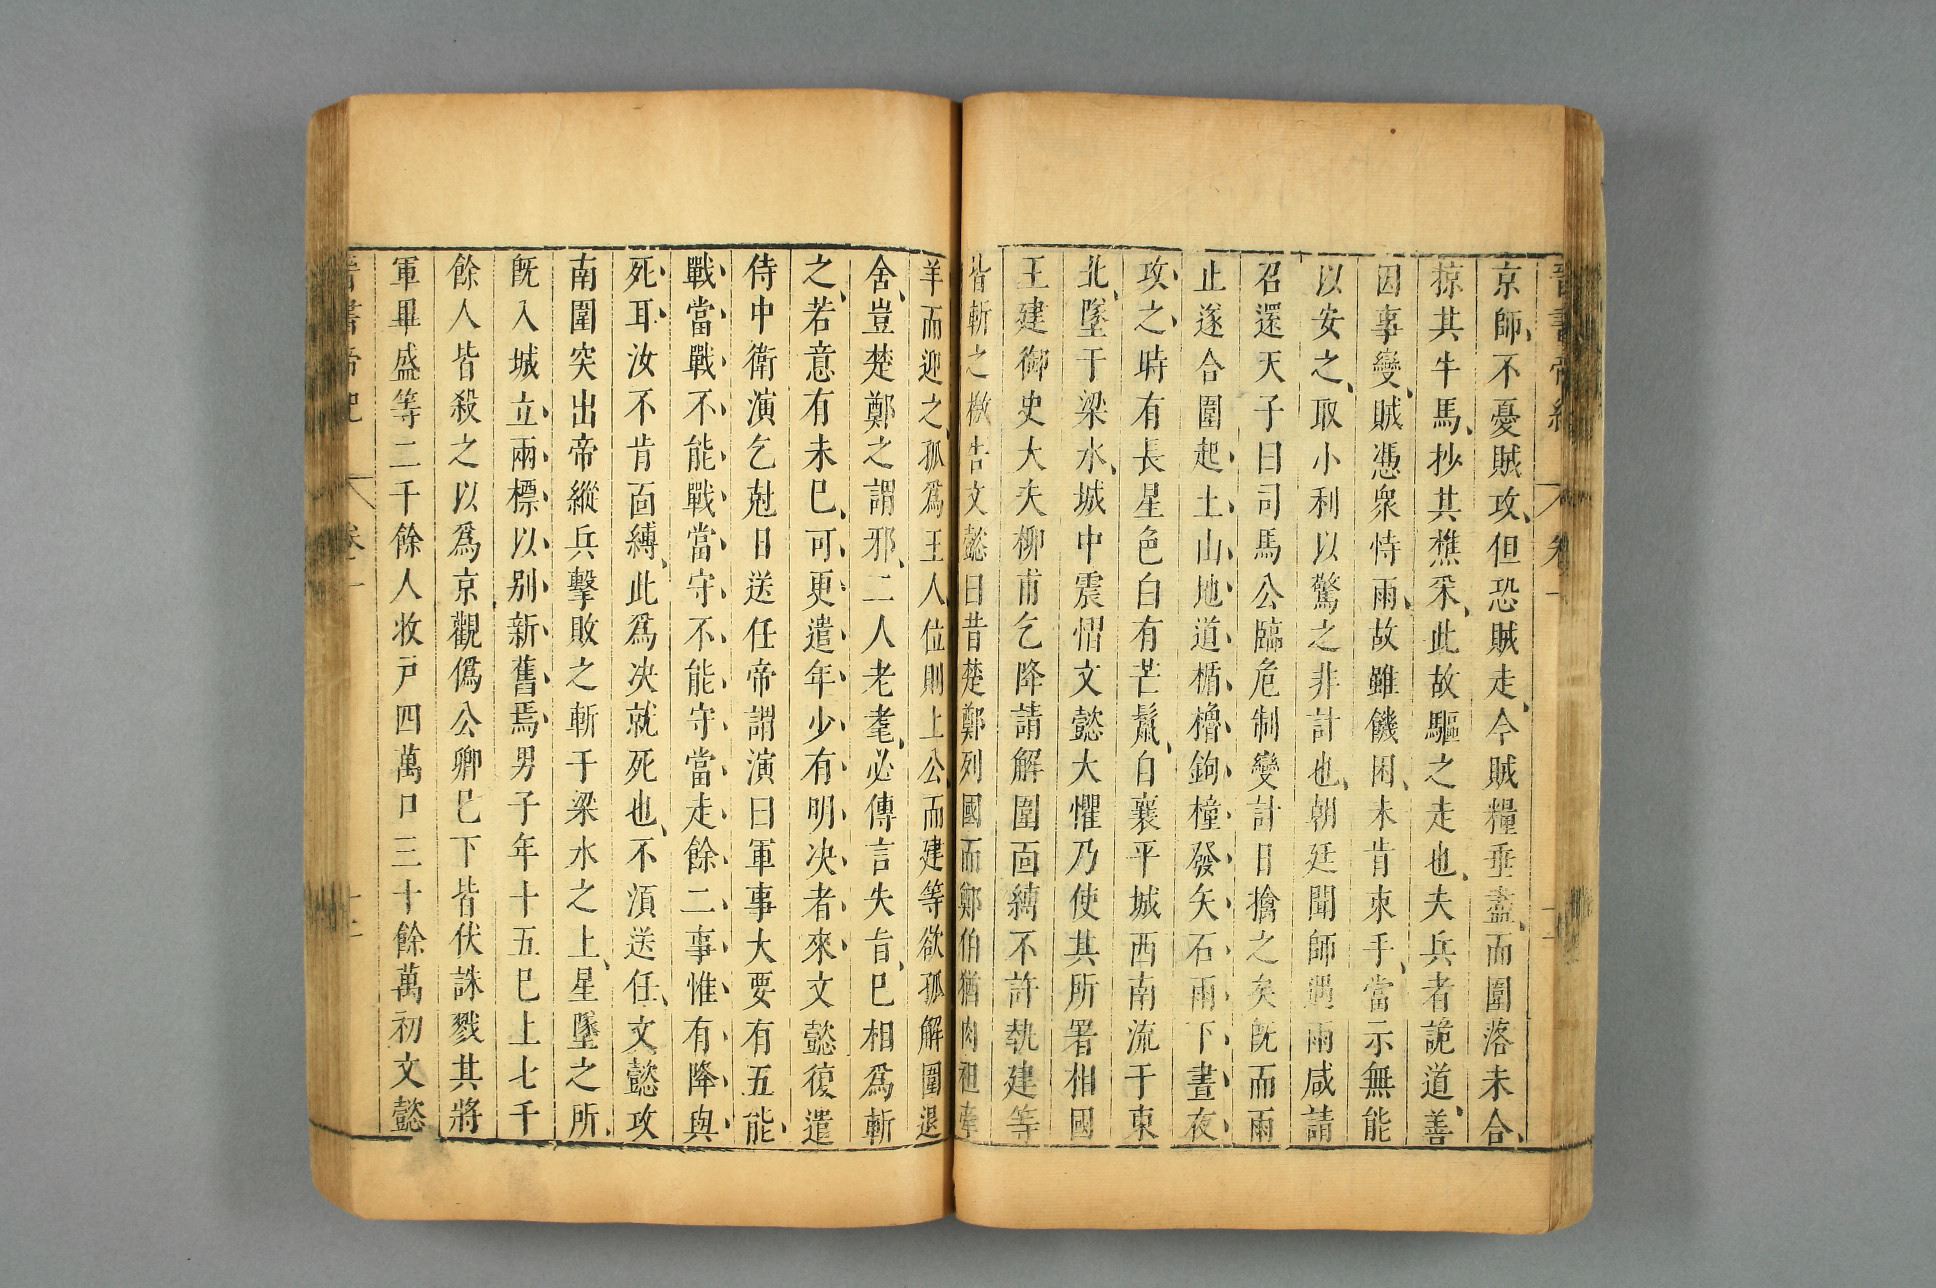 晉書帝紀 卷一
京師不憂賊攻但恐賊走今賊糧垂盡而圍落未合
掠其牛馬抄其樵采此故驅之走也夫兵者詭道善
因事變賊憑衆恃雨故雖饑困未肯束手當示無能
以安之取小利以驚之非計也朝廷聞師遇雨咸請
召還天子曰司馬公臨危制變計日擒之矣旣而雨
止遂合圍起土山地道楯櫓鉤橦發矢石雨下晝夜
攻之時有長星色白有芒鬣自襄平城西南流于東
北墜于梁水城中震慴文懿大懼乃使其所署相國
王建御史大夫柳甫乞降請解圍面縛不許執建等
皆斬之檄告文懿曰昔楚鄭列國而鄭伯猶肉袒牽
羊而迎之孤爲王人位則上公而建等欲孤解圍退
舍豈楚鄭之謂邪二人老耄必傳言失旨已相爲斬
之若意有未已可更遣年少有明决者來文懿復遣
侍中衛演乞尅日送任帝謂演曰軍事大要有五能
戰當戰不能戰當守不能守當走餘二事惟有降與
死耳汝不肯面縛此爲决就死也不湏送任文懿攻
南圍突出帝縱兵擊敗之斬于梁水之上星墜之所
旣入城立兩標以别新舊焉男子年十五已上七千
餘人皆殺之以爲京觀僞公卿已下皆伏誅戮其將
軍畢盛等二千餘人收戸四萬口三十餘萬初文懿
晉書帝紀 卷一